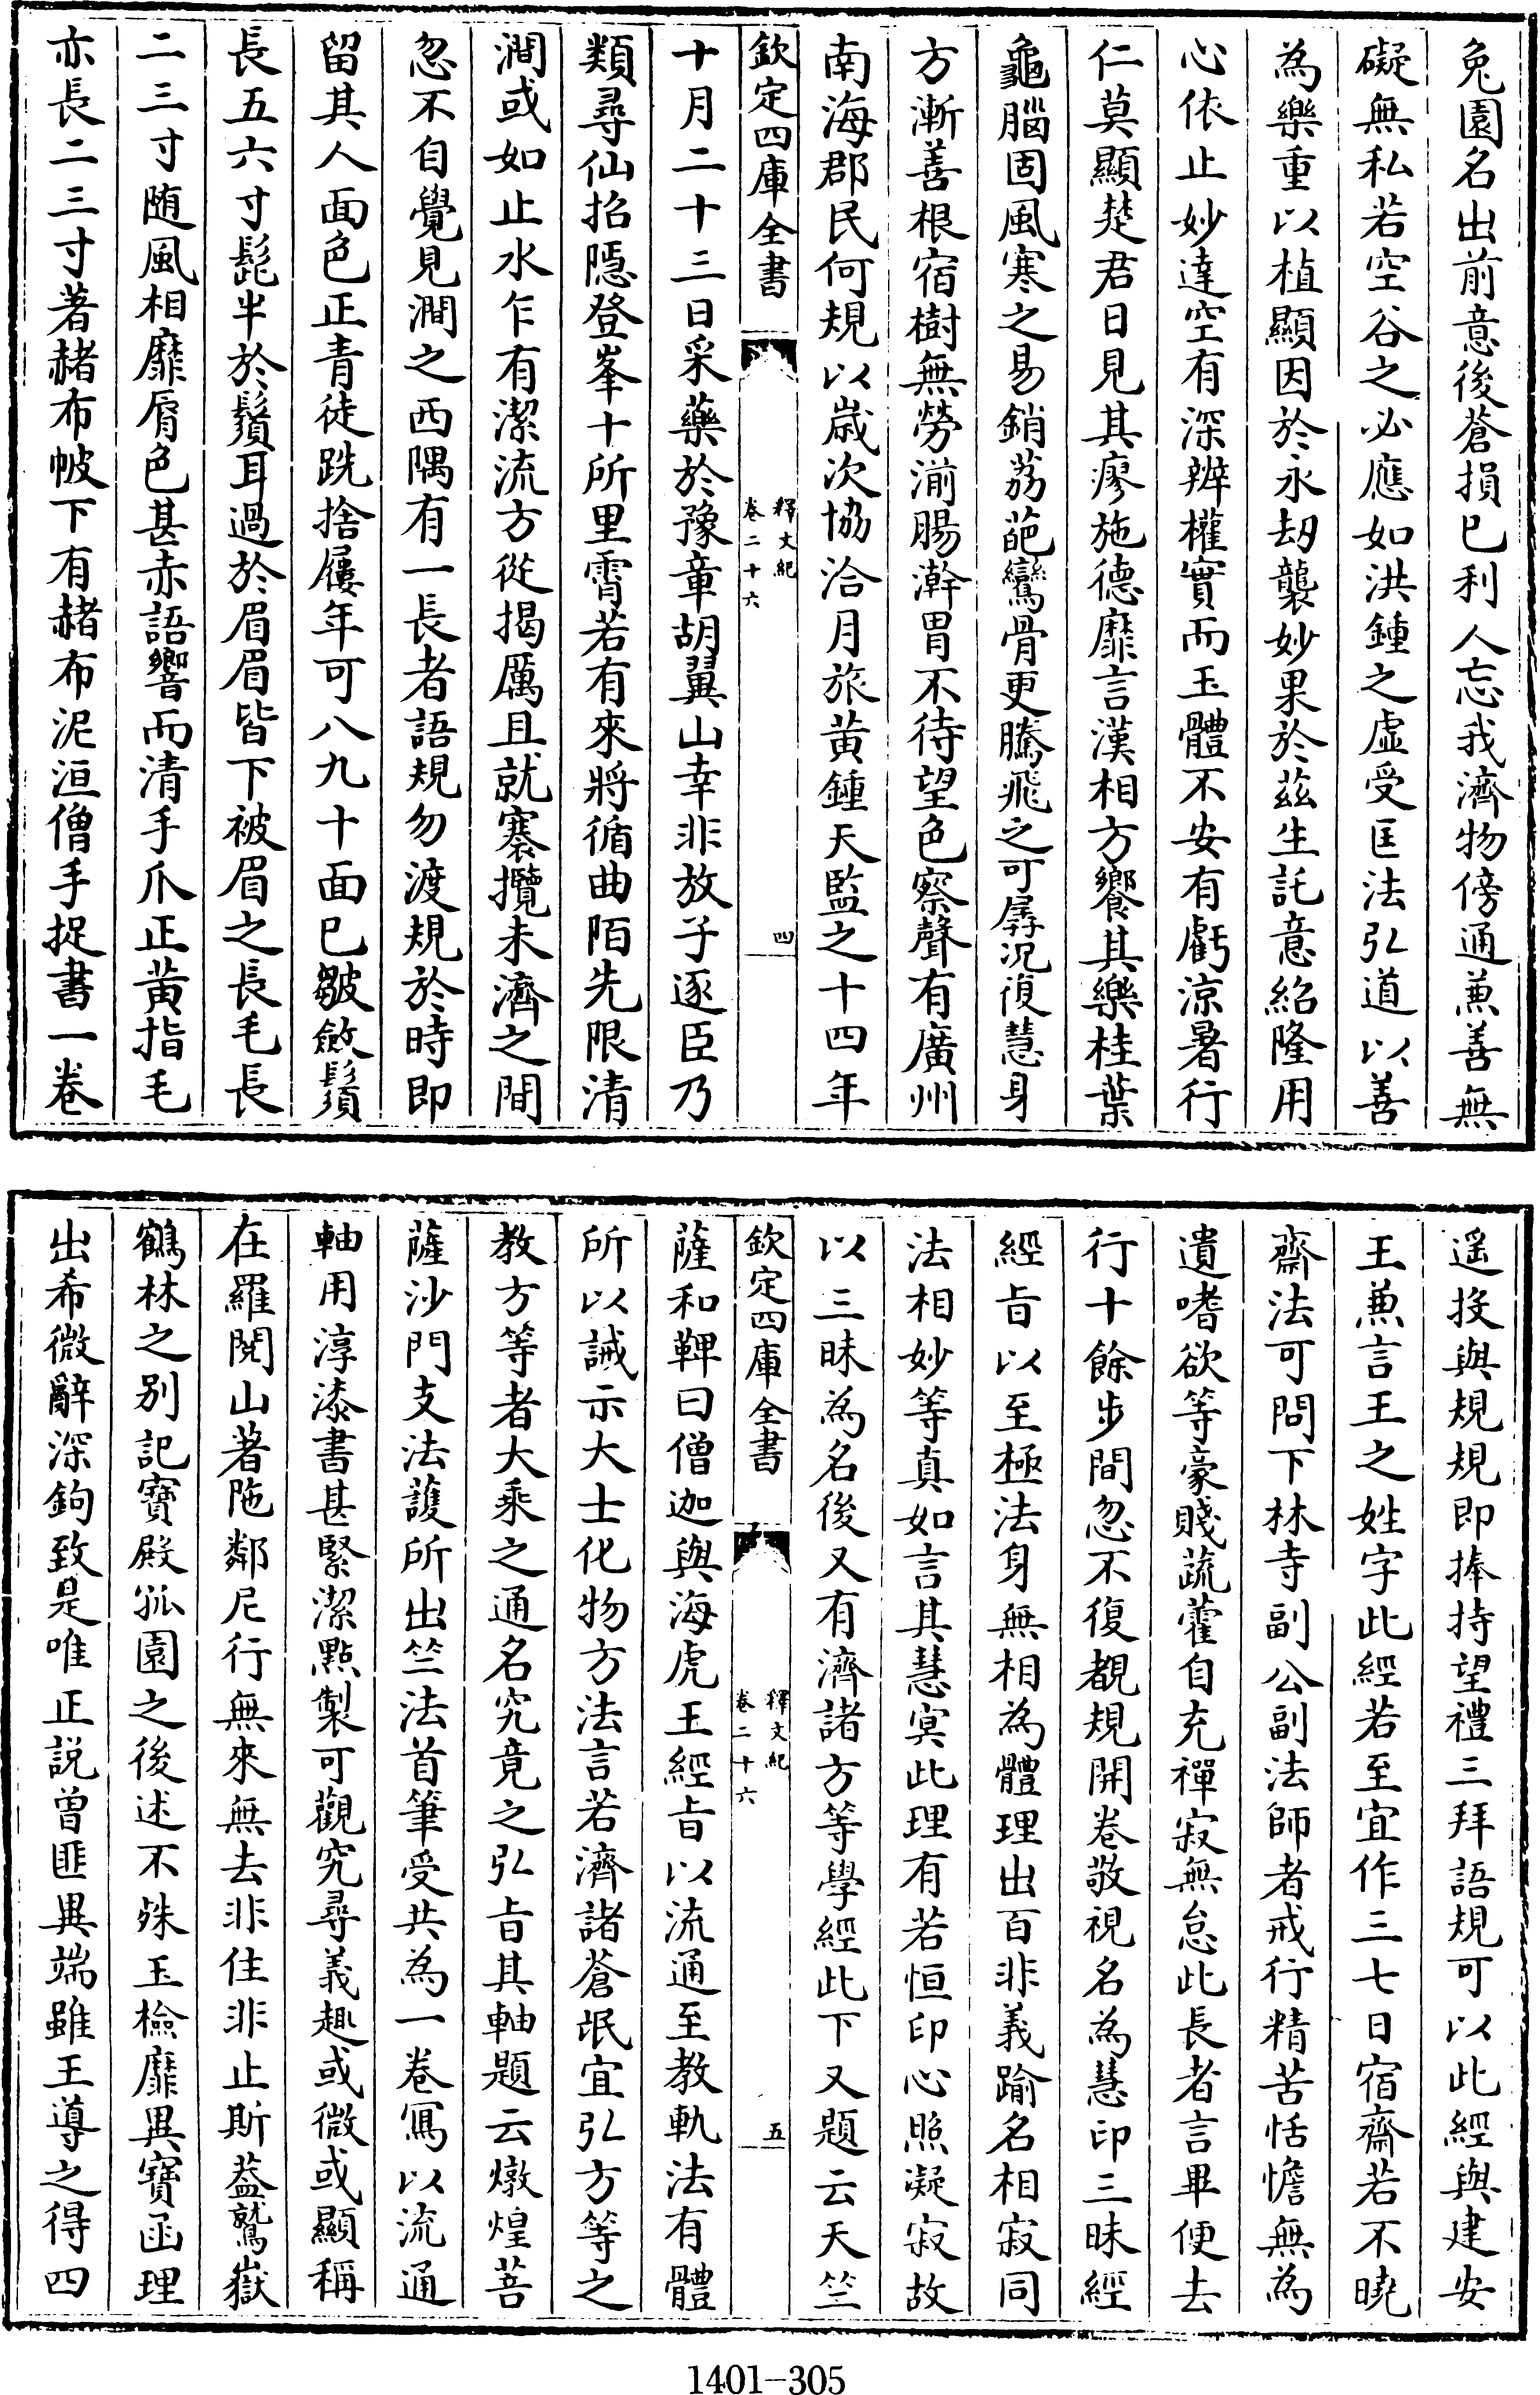 兔園名出前意後蒼損已利人忘我濟物傍通兼善無
礙無私若空谷之必應如洪鍾之虚受匡法弘道以善
為樂重以植顯因於永刼襲妙果於兹生託意紹隆用
心依止妙達空有深辨權實而玉體不安有虧涼暑行
仁莫顯楚君日見其瘳施德靡言漢相方饗其樂桂葉
龜腦固風寒之易銷荔葩鸞骨更騰飛之可孱況復慧身
方漸善根宿樹無勞湔腸澣胃不待望色察聲有廣州
南海郡民何規以歲次協洽月旅黄鍾天監之十四年
欽定四庫全書
釋文紀
卷二十六
四
十月二十三日采藥於豫章胡翼山幸非放子逐臣乃
類尋仙招隱登峯十所里霄若有來將循曲陌先限清
澗或如止水乍有潔流方從揭厲且就褰攬未濟之間
忽不自覺見澗之西隅有一長者語規勿渡規於時即
留其人面色正青徒跣捨屨年可八九十面已皺斂鬚
長五六寸髭半於鬚耳過於眉眉皆下被眉之長毛長
二三寸随風相靡脣色甚赤語響而清手爪正黄指毛
亦長二三寸著赭布帔下有赭布泥洹僧手捉書一卷
遥投與規規即捧持望禮三拜語規可以此經與建安
王兼言王之姓字此經若至宜作三七日宿齋若不曉
齋法可問下林寺副公副法師者戒行精苦恬憺無為
遺嗜欲等豪賤蔬藿自充禪寂無怠此長者言畢便去
行十餘步間忽不復覩規開卷敬視名為慧印三昧經
經旨以至極法身無相為體理出百非義踰名相寂同
法相妙等真如言其慧冥此理有若恒印心照凝寂故
以三昧為名後又有濟諸方等學經此下又題云天竺
欽定四庫全書
釋文紀
卷二十六
五
薩和鞞曰僧迦與海虎王經旨以流通至教軌法有體
所以誡示大士化物方法言若濟諸蒼氓宜弘方等之
教方等者大乘之通名究竟之弘旨其軸題云燉煌菩
薩沙門支法護所出竺法首筆受共為一卷寫以流通
軸用淳漆書甚緊潔點製可觀究尋義趣或微或顯稱
在羅閱山著陁鄰尼行無來無去非住非止斯葢鷲嶽
鶴林之别記寶殿孤園之後述不殊玉檢靡異寶函理
出希微辭深鉤致是唯正説曽匪異端雖王導之得四
1401-305